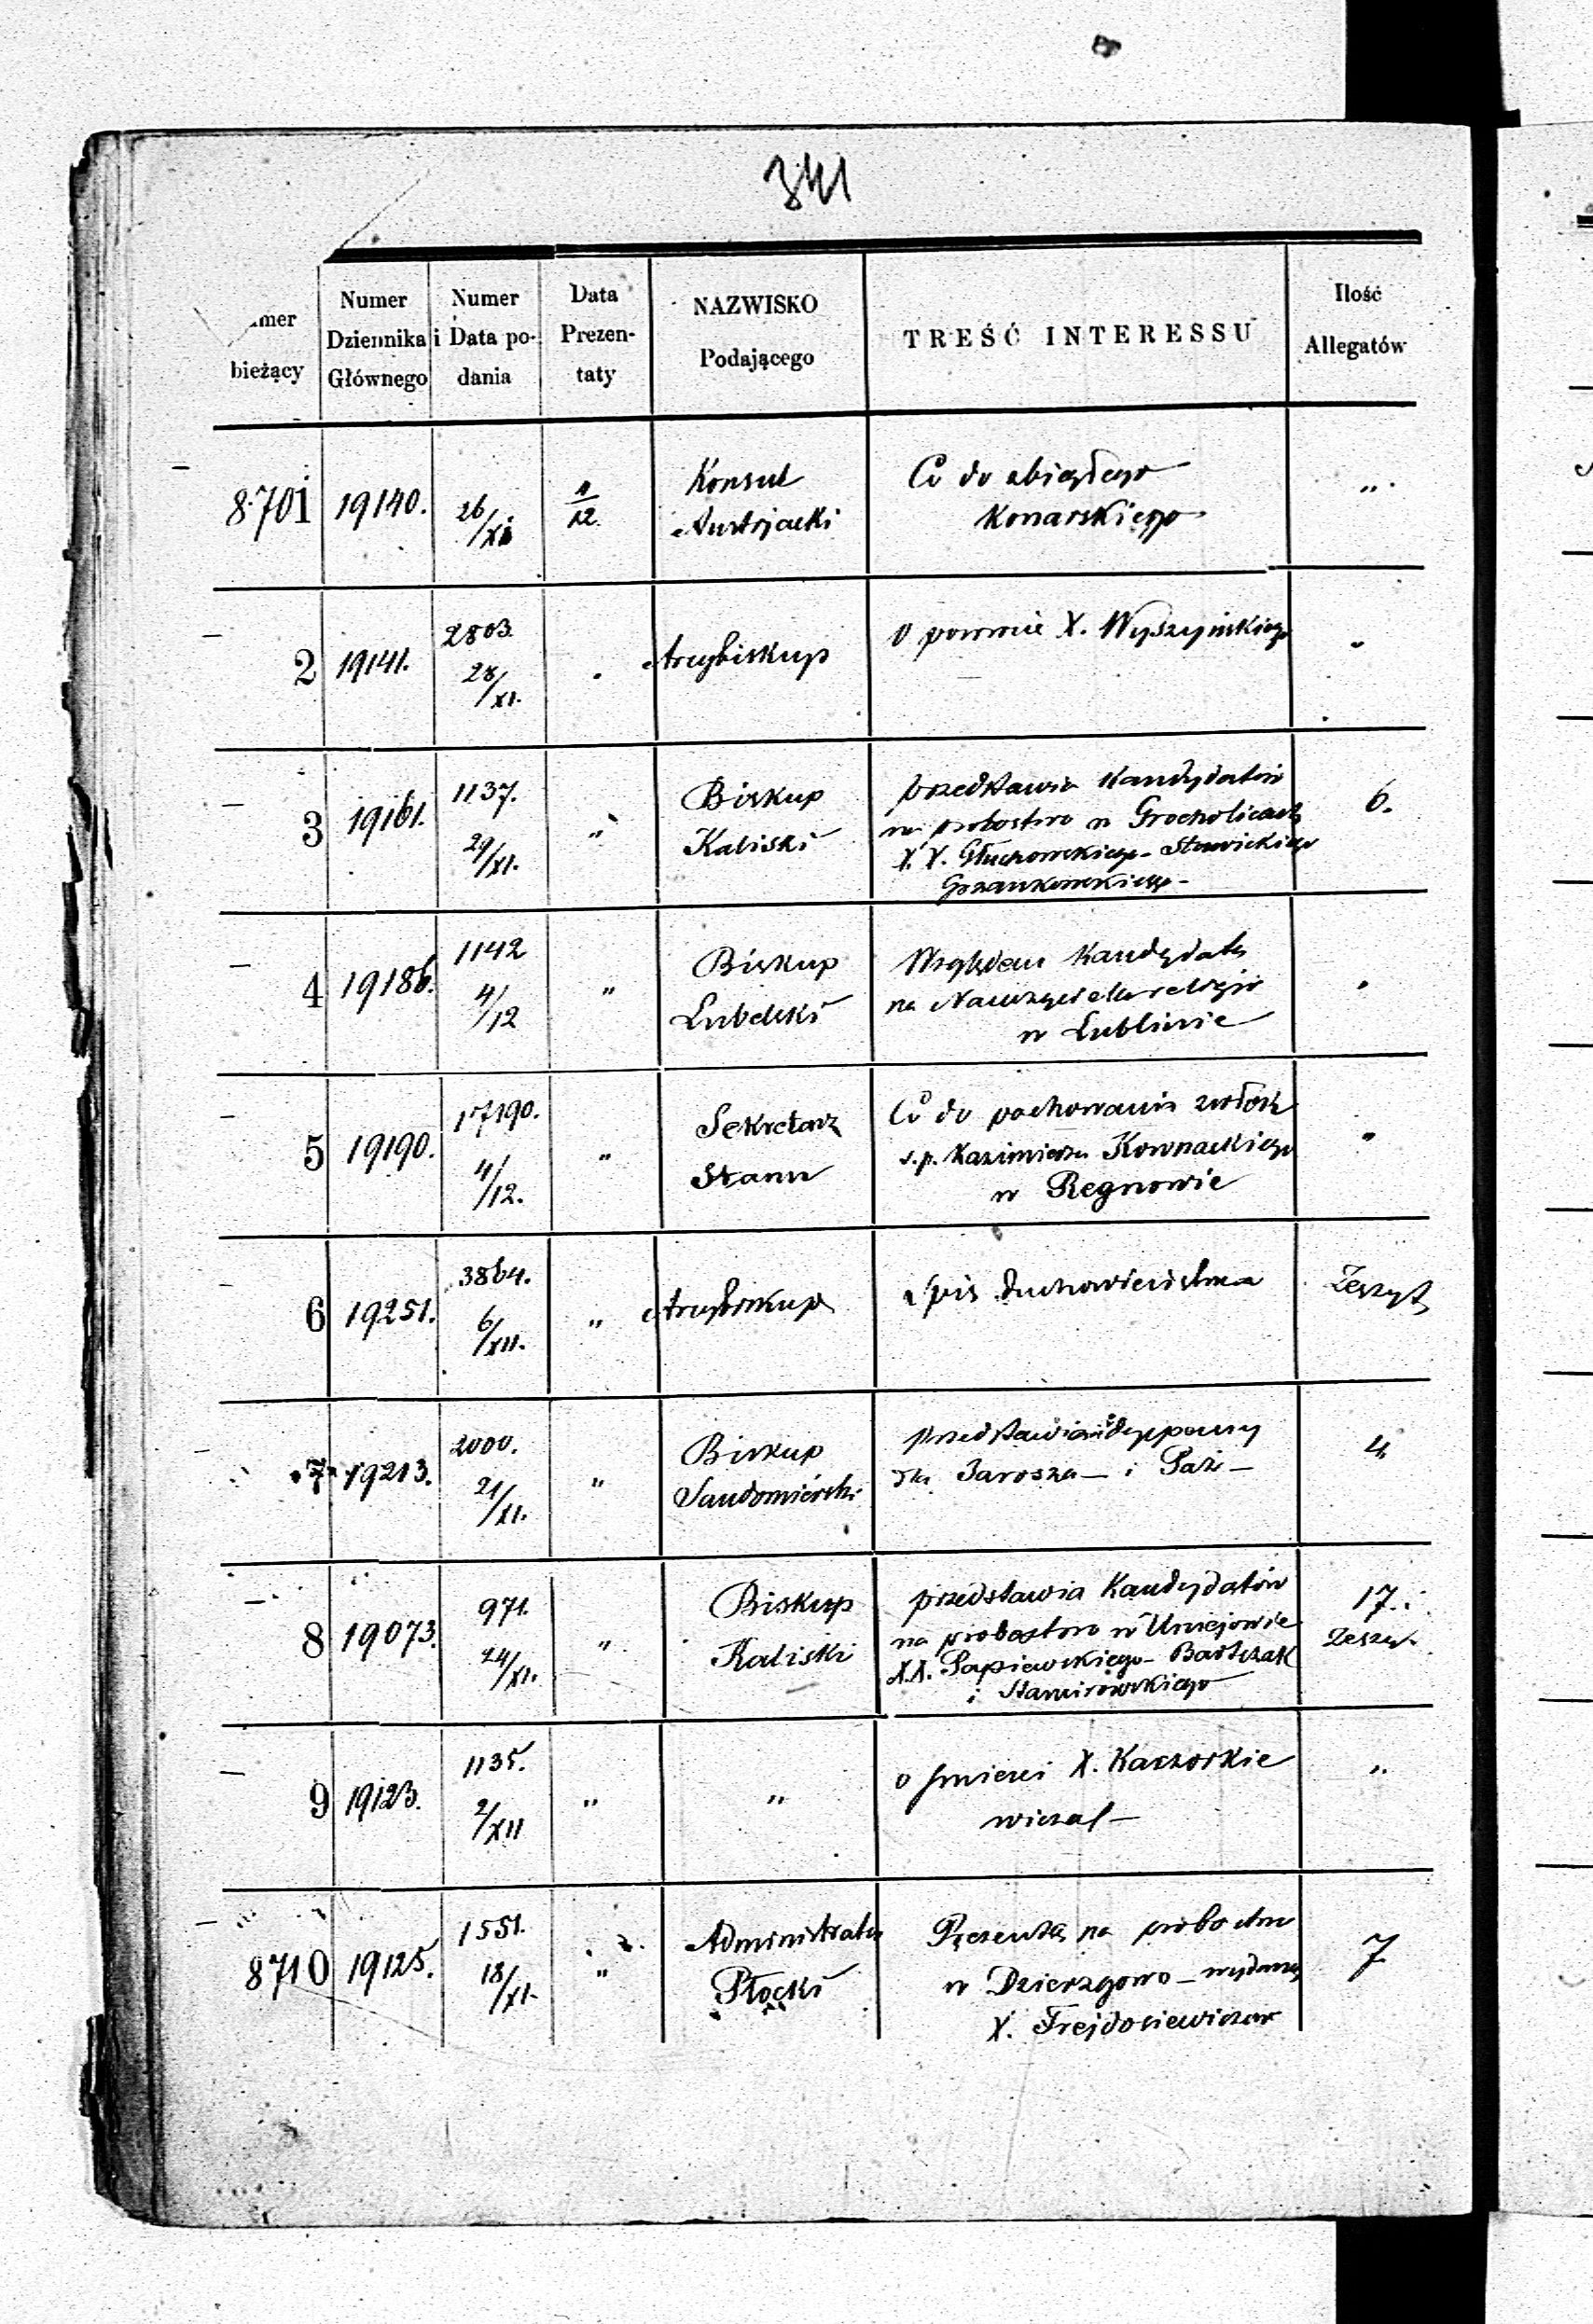 341
Numer bieżący
Numer Dziennika Głównego
Numer i Data podania
Data Prezentaty
NAZWISKO Podającego
TREŚĆ INTERESSU
Ilość Allegatów
8701 19140. 26/XI 1/12 Konsul Co do zbiegłego „
Austrjacki Konarskiego
2 19141. 2803 28/XI. „ Arcybiskup O powrocie X. Wyszyńskiego „
3 19161. 1137. 29/XI. „ Biskup przedstawia Kandydatów 6.
Kaliski na probostwo w Grocholicach
X.X. Głuchowskiego - Stawickiego
4 19186. 1142 4/12 „ Biskup Względem Kandydata „
Lubelski na Nauczyciela religii
w Lublinie
5 19190. 17190. 4/12. „ Sekretarz Co do pochowania zwłok „
Stanu ś.p. Kazimierza Kownackiego
w Regnowie
6 19251. 3864. 6/XII. „ Arcybiskup Spis duchowieństwa Zeszyt
7 19213. 2000. 21/XI. „ Biskup przedstawia 4
Sandomierski dla Jarosza — i
8 19073. 971. 24/XI. „ Biskup przedstawia Kandydatów 17.
Kaliski na probostwo w Uniejowie Zeszyt
X.X. Papiewskiego - Bartczak
i Stamirowskiego
9 19123. 1135. 2/XII „ „ o śmierci X. Kaczorkie „
wicza —
8710 19125. 1551. 18/XI. „ Administrator na probostwo 7
Płocki w Dzierzgowo — wydaną
X. Trejdosiewiczow